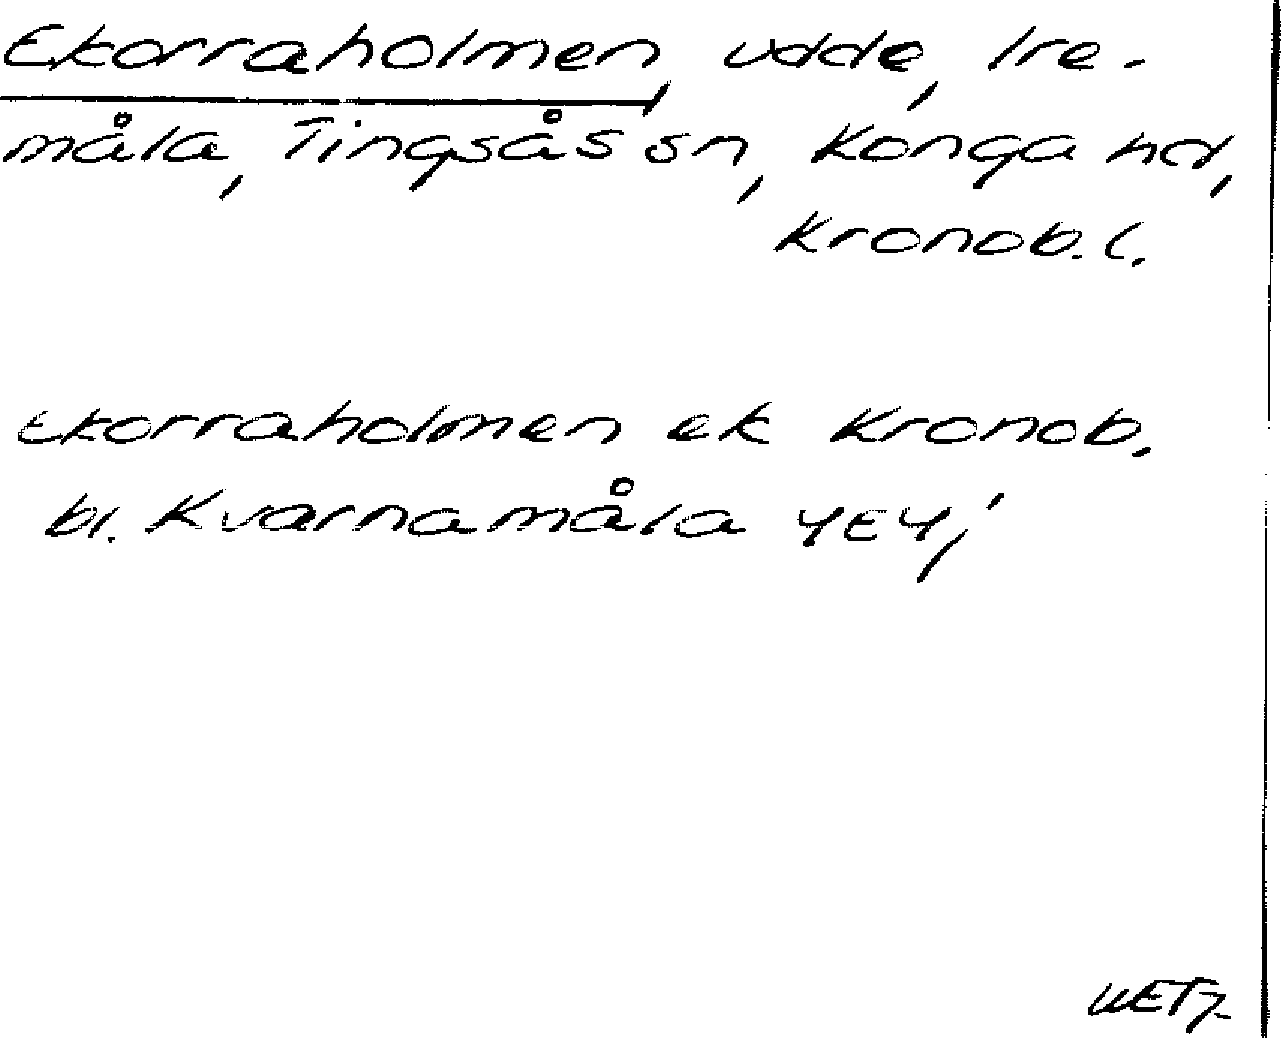 Ekorraholmen, udde, Ire-
måla, Tingsås sn, Konga hd,
Kronob. l.
Ekorraholmen ek Kronob.
bl. Kvarnamåla 4E4j